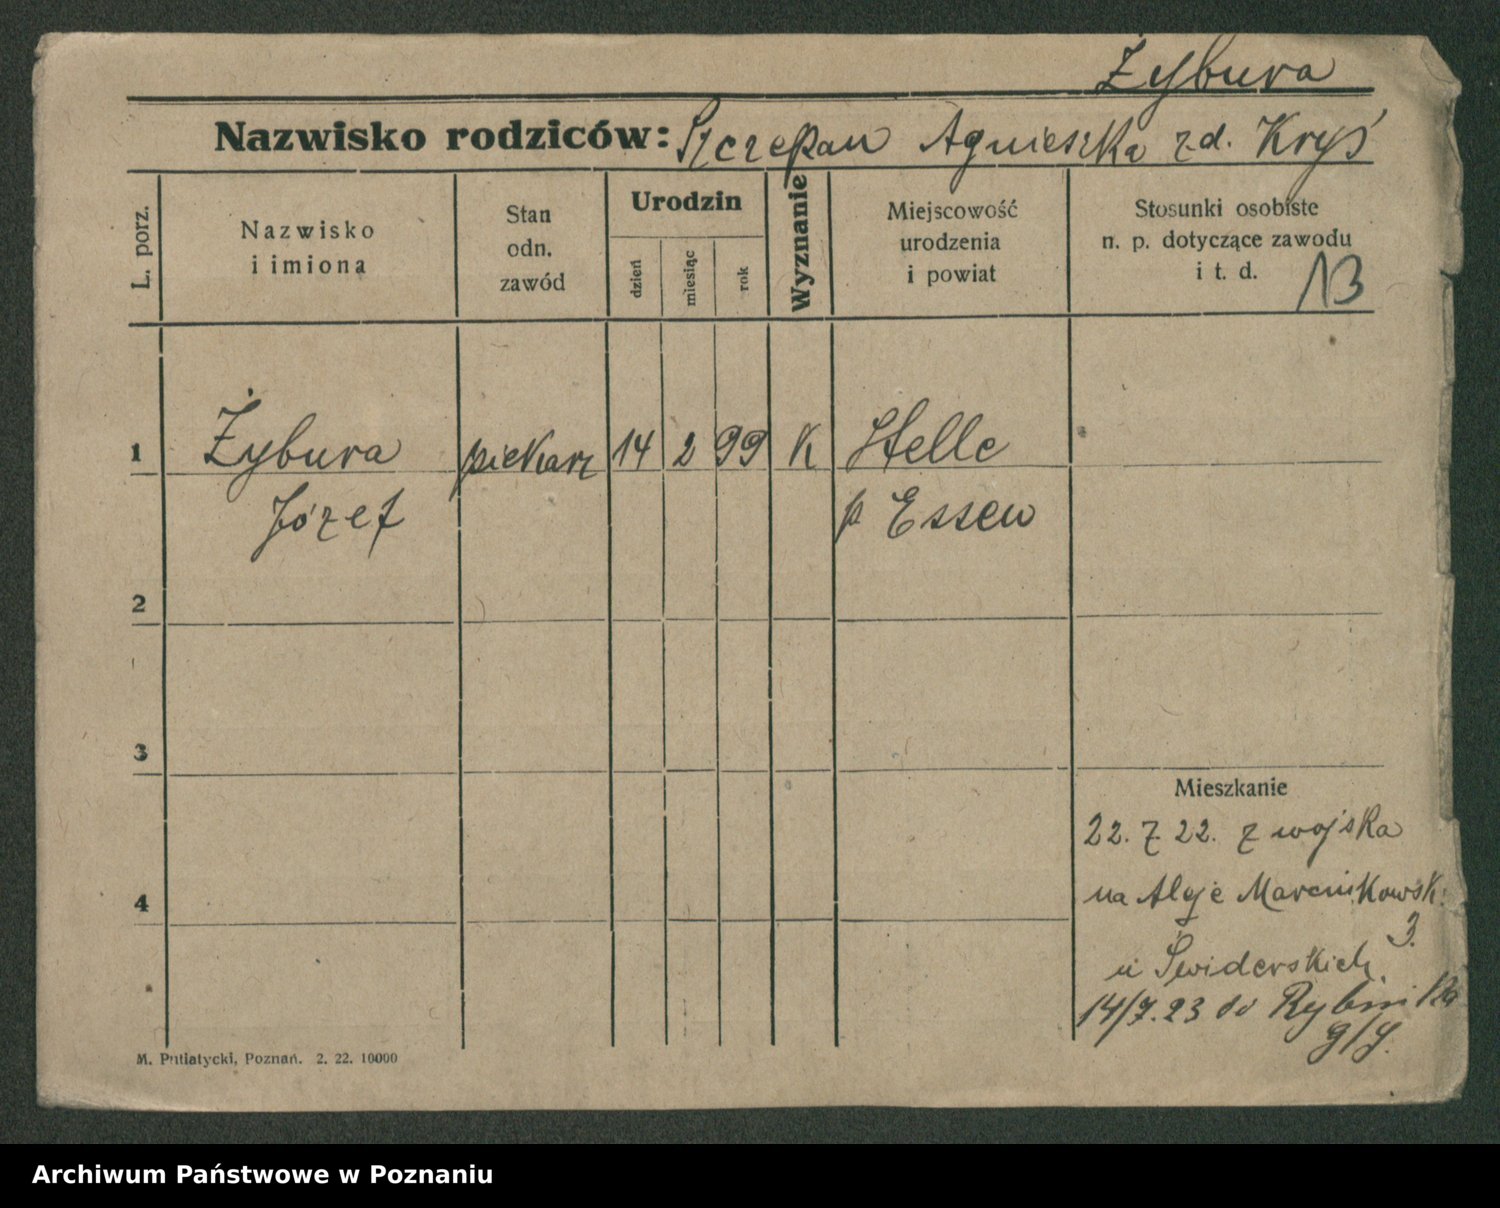 Żybura
Nazwisko rodziców: Szczepan Agnieszka zd. Kryś
L. porz.
Nazwisko
i imiona
Stan
odn.
zawód
Urodzin
dzień
miesiąc
rok
Wyznanie
Miejscowość
urodzenia
i powiat
Stosunki osobiste
n. p. dotyczące zawodu
i t. d.
1 Żybura piekarz 14 2 99 K Stelle
Józef p Essen
2
3
Mieszkanie
22. 7 22. z wojska
na Aleje Marcinkowsk.
3.
4
u Świderskich.
14/7.23 do Rybnika
M. Putiatycki, Poznań. 2. 22. 10000
Archiwum Państwowe w Poznaniu